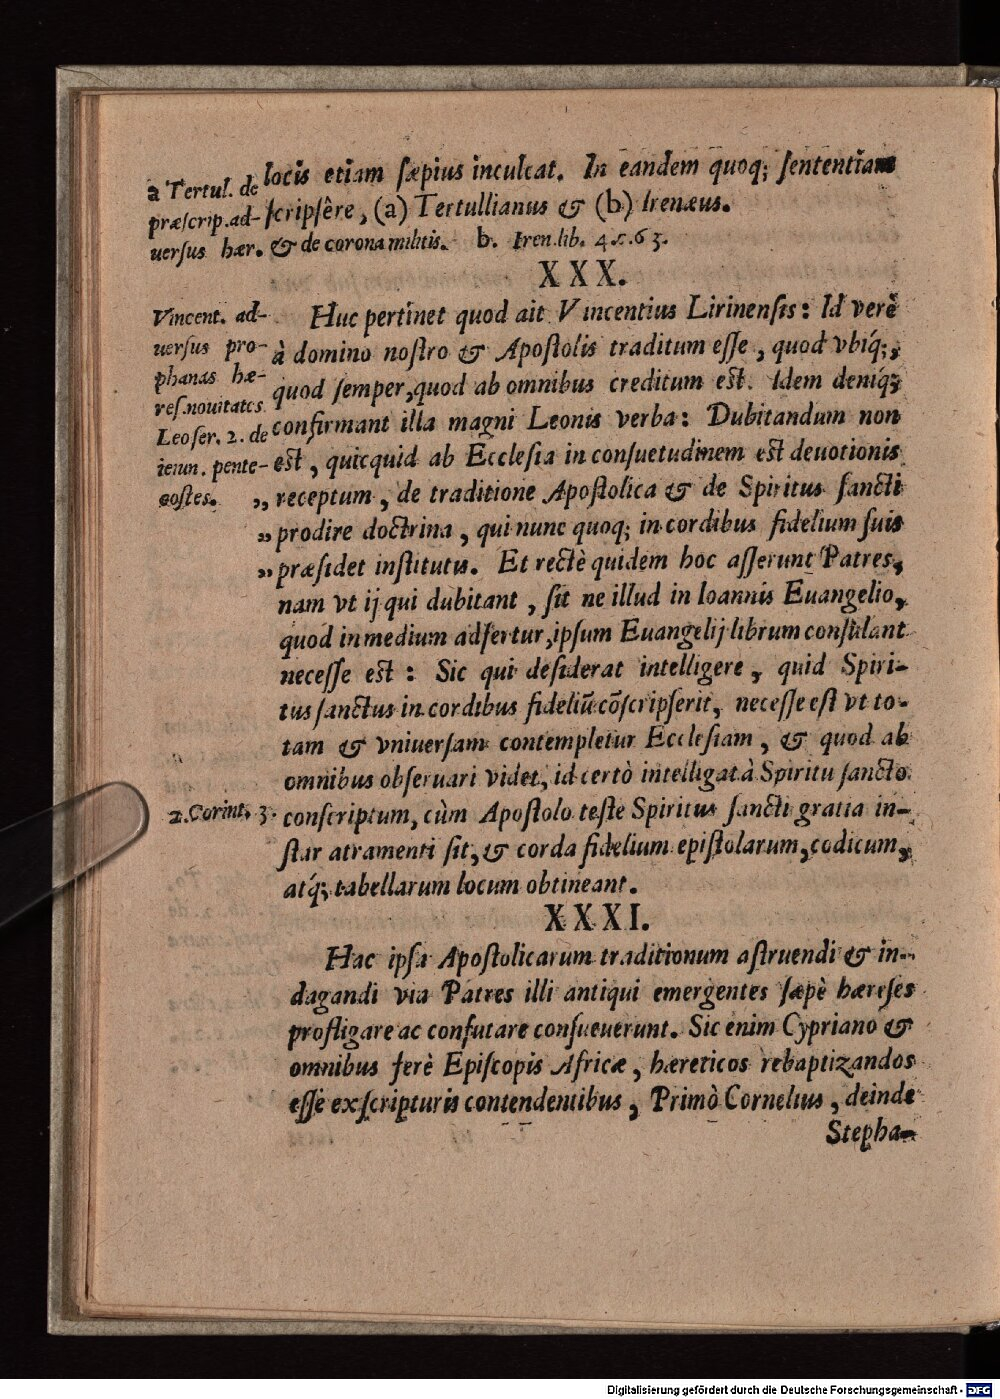 locis etiam sæpius inculcat. In eandem quoq; sententiam
scripsêre, (a) Tertullianus & (b) Irenæus.
a Tertul. de
præscrip. ad-
uersus hær. & de corona militis. b. Iren. lib. 4. c. 63.
XXX.
Huc pertinet quod ait Vincentius Lirinensis: Id verè
à domino nostro & Apostolis traditum esse, quod vbíq;,
quod semper, quod ab omnibus creditum est. Idem deníq;
confirmant illa magni Leonis verba: Dubitandum non
est, quicquid ab Ecclesia in consuetudinem est deuotionis
„ receptum, de traditione Apostolica & de Spiritus sancti
„ prodire doctrina, qui nunc quoq; in cordibus fidelium suis
„ præsidet institutis. Et rectè quidem hoc asserunt Patres,
nam vt ij qui dubitant, sit ne illud in Ioannis Euangelio,
quod in medium adfertur, ipsum Euangelij librum consulant
necesse est: Sic qui desiderat intelligere, quid Spiri-
tus sanctus in cordibus fideliũ cõscripserit, necesse est vt to-
tam & vniuersam contempletur Ecclesiam, & quod ab
omnibus obseruari videt, id certò intelligat à Spiritu sancto
conscriptum, cùm Apostolo teste Spiritus sancti gratia in-
star atramenti sit, & corda fidelium epistolarum, codicum,
atq́; tabellarum locum obtineant.
Vincent. ad-
uersus pro-
phanas hæ-
res. nouitates
Leo ser. 2. de
ieiun. pente-
costes.
2. Corint. 3.
XXXI.
Hac ipsa Apostolicarum traditionum astruendi & in-
dagandi via Patres illi antiqui emergentes sæpè hæreses
profligare ac confutare consueuerunt. Sic enim Cypriano &
omnibus ferè Episcopis Africæ, hæreticos rebaptizandos
esse ex scripturis contendentibus, Primò Cornelius, deinde
Stepha-
Digitalisierung gefördert durch die Deutsche Forschungsgemeinschaft - DFG